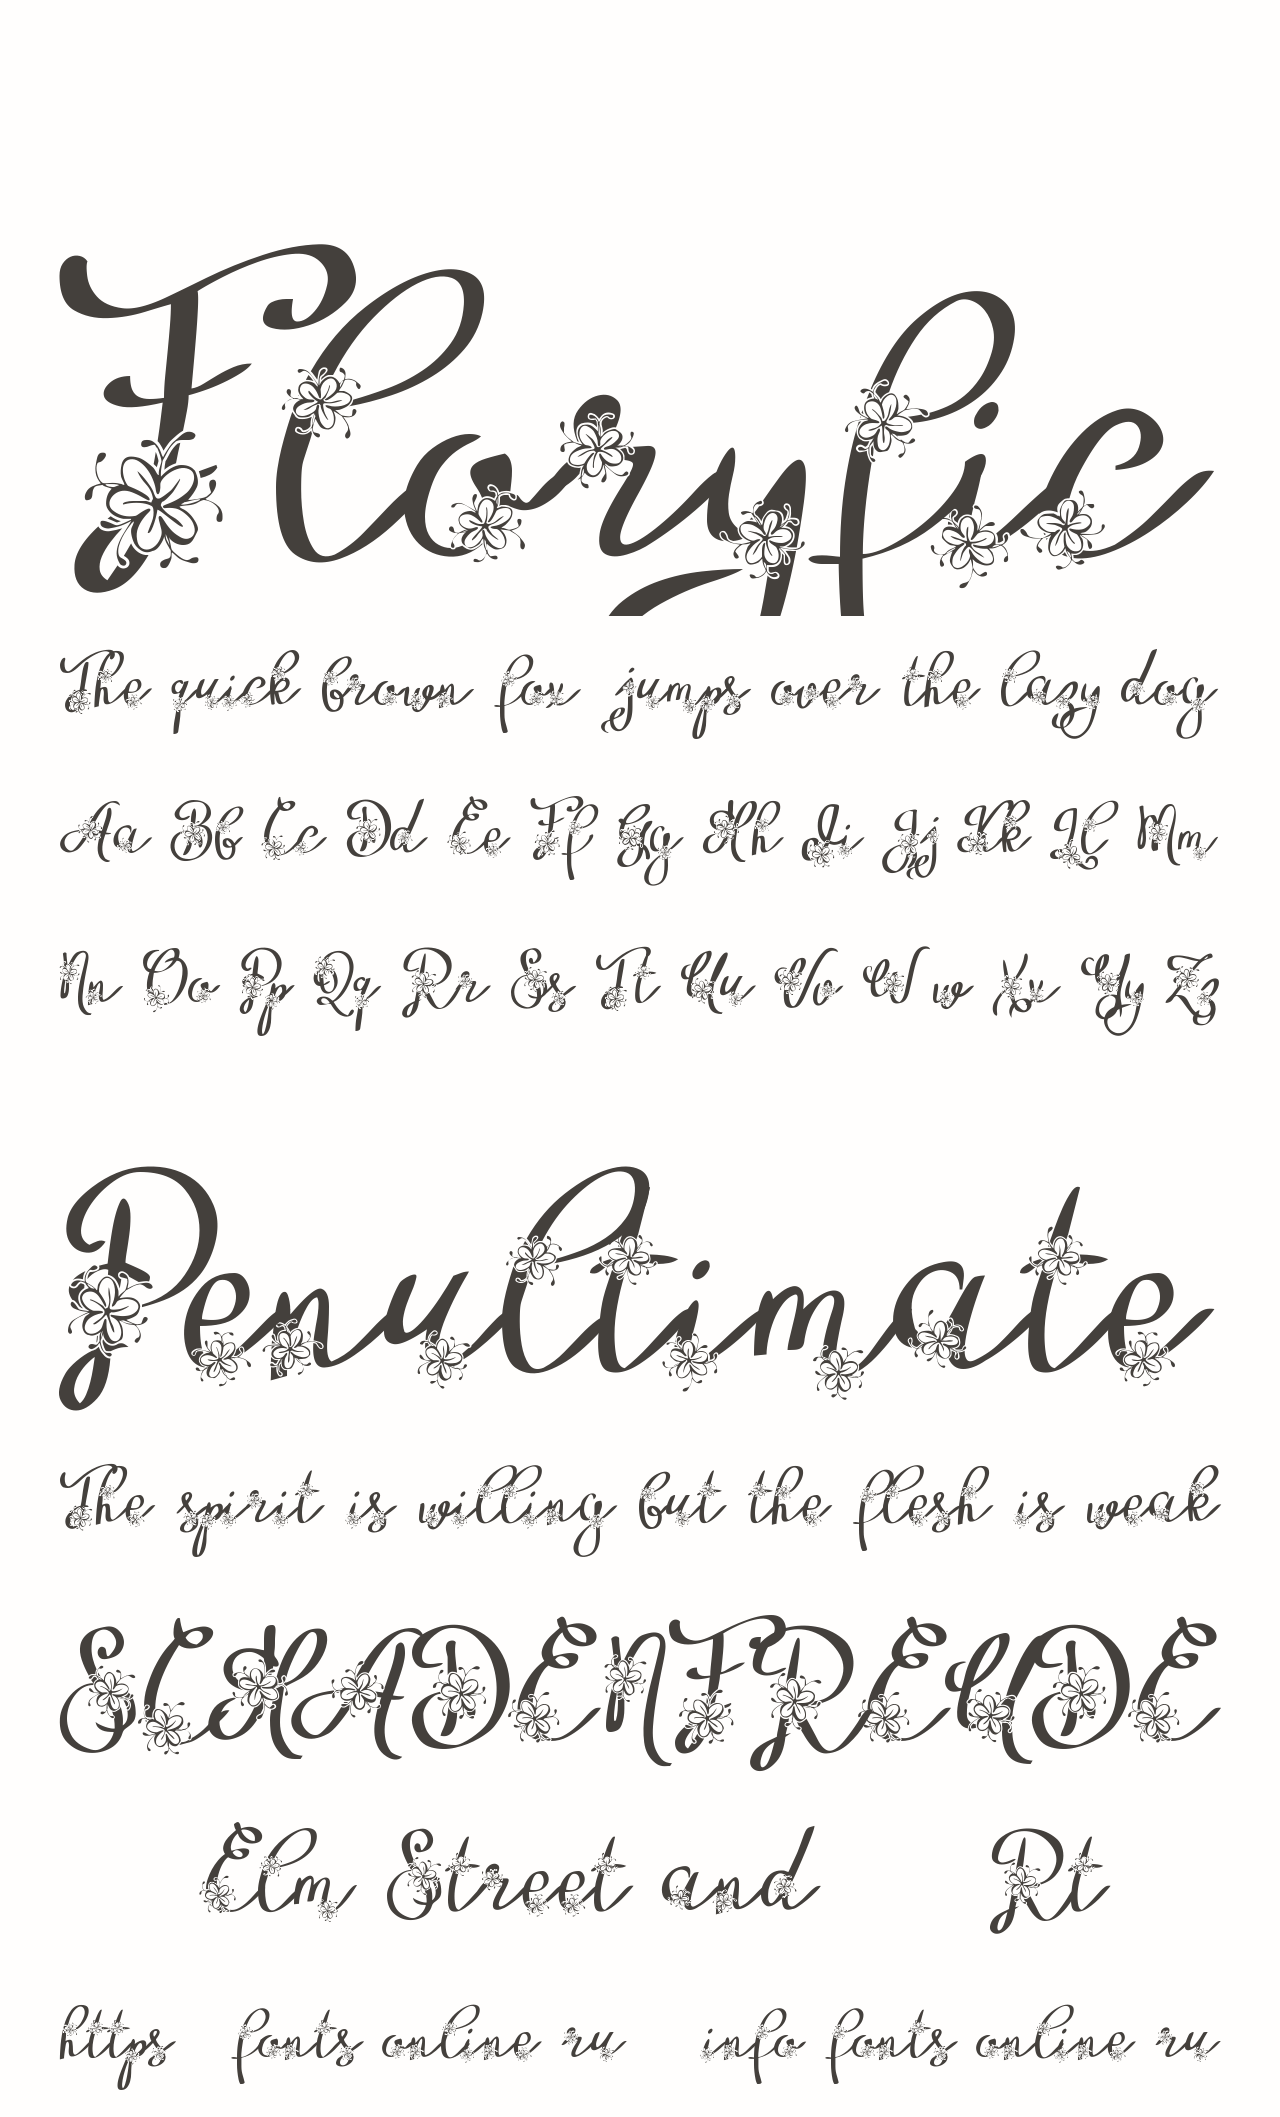 Floryfic
The quick brown fox jumps over the lazy dog
Aa Bb Cc Dd Ee Ff Gg Hh Ii Jj Kk Ll Mm
Nn Oo Pp Qq Rr Ss Tt Uu Vv Ww Xx Yy Zz
Penultimate
The spirit is willing but the flesh is weak
SCHADENFREUDE
Elm Street and Rt
https fonts online ru info fonts online ru